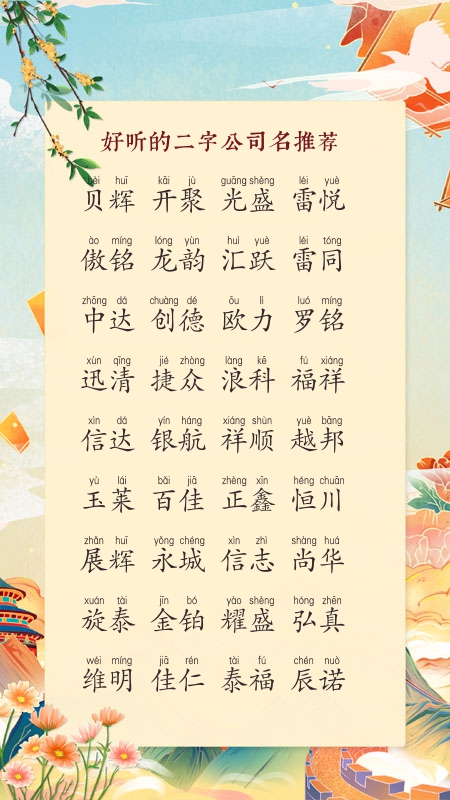 好听的二字公司名推荐
bèi huī kāi jù guāng shèng léi yuè
贝辉 开聚 光盛 雷悦
ào míng lóng yùn huì yuè léi tóng
傲铭 龙韵 汇跃 雷同
zhōng dá chuàng dé ōu lì luó míng
中达 创德 欧力 罗铭
xùn qīng jié zhòng làng kē fú xiáng
迅清 捷众 浪科 福祥
xìn dá yín háng xiáng shùn yuè bāng
信达 银航 祥顺 越邦
yù lái bǎi jiā zhèng xīn héng chuān
玉莱 百佳 正鑫 恒川
zhǎn huī yǒng chéng xìn zhì shàng huá
展辉 永城 信志 尚华
xuán tài jīn bó yào shèng hóng zhēn
旋泰 金铂 耀盛 弘真
wéi míng jiā rén tài fú chén nuò
维明 佳仁 泰福 辰诺